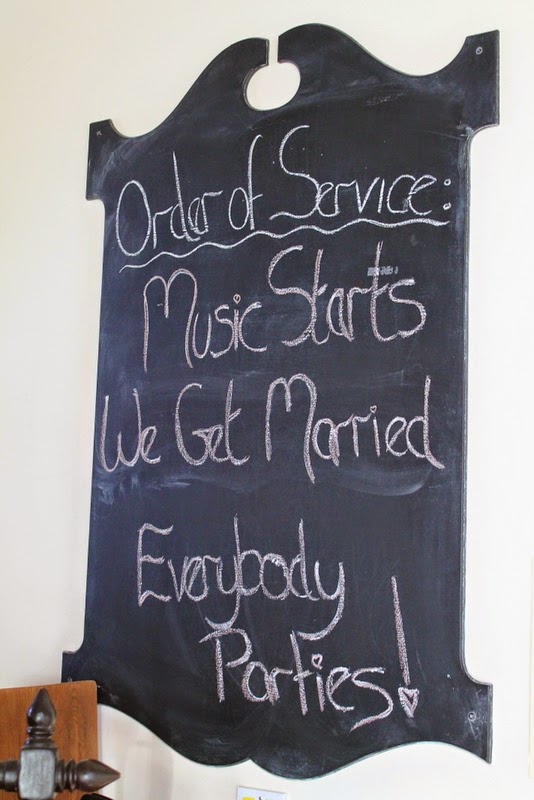 Order of Service:
Music Starts
We Get Married
Everybody
Parties!